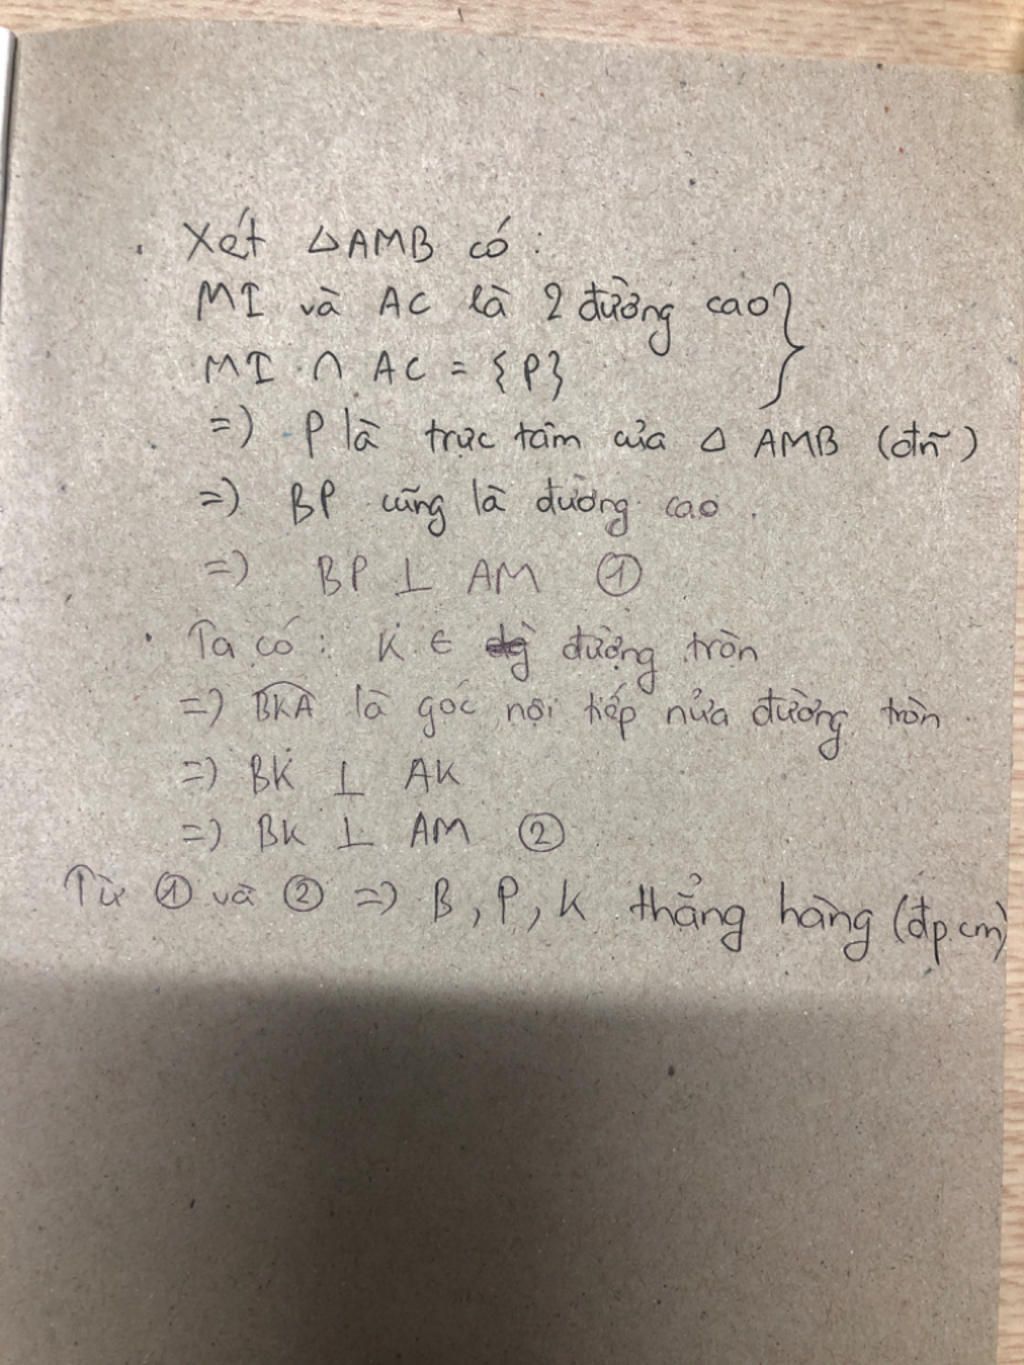 . Xét △AMB có :
MI và AC là 2 đường cao }
MI ∩ AC = {P}
=) P là trực tâm của △ AMB (đ/n)
=) BP cũng là đường cao .
=) BP ⊥ AM ①
. Ta có : K ∈ đường tròn
=) BKA là góc nội tiếp nửa đường tròn .
=) BK ⊥ AK
=) BK ⊥ AM ②
Từ ① và ② =) B, P, K thẳng hàng (đpcm)